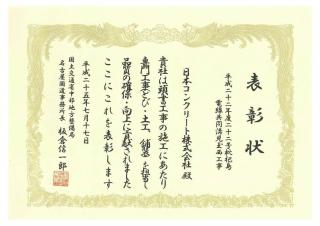 表彰状
平成二十二年度二十二号枇杷島
電線共同溝児玉西工事
日本コンクリート株式会社 殿
貴社は頭書工事の施工にあたり
専門工事とび・土工、舗装を担当し
品質の確保・向上に貢献されました
ここにこれを表彰します
平成二十五年七月十七日
国土交通省中部地方整備局
名古屋国道事務所長 板倉信一郎